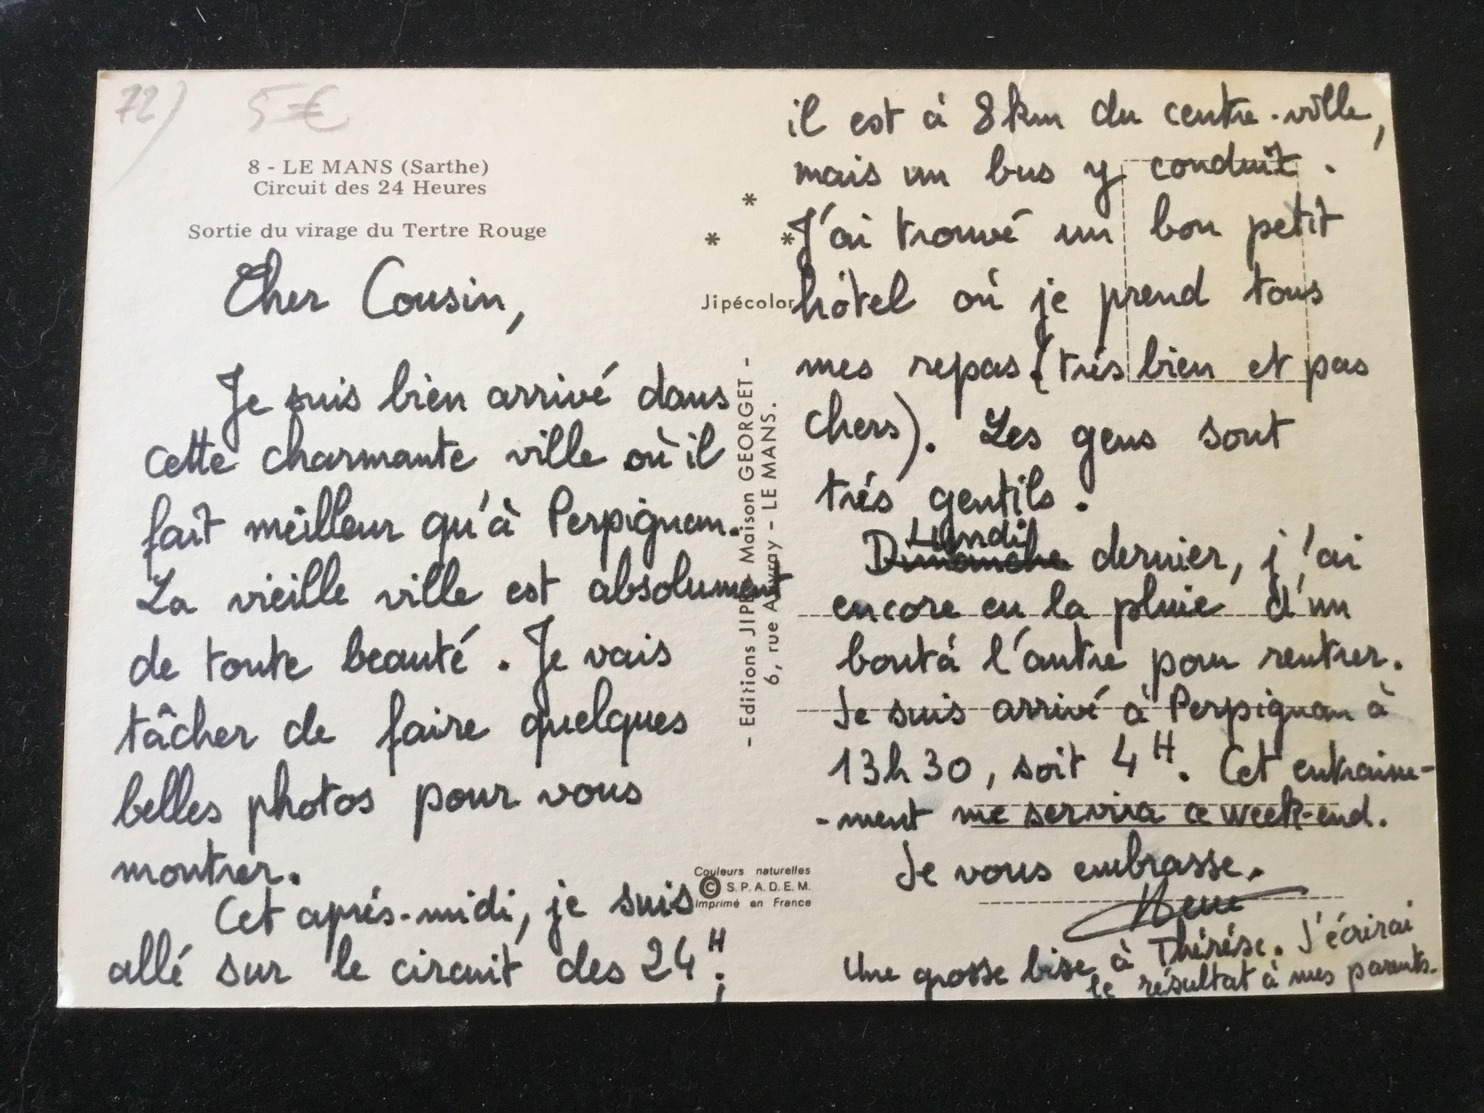 72) 5€
8 - LE MANS (Sarthe)
Circuit des 24 Heures
Sortie du virage du Tertre Rouge
Cher Cousin,
Je suis bien arrivé dans
cette charmante ville où il
fait meilleur qu'à Perpignan.
La vieille ville est absolument
de toute beauté. Je vais
tâcher de faire quelques
belles photos pour vous
montrer.
Cet après-midi, je suis
allé sur le circuit des 24 H;
* * *
Jipécolor
- Editions JIP Maison GEORGET -
6, rue Avray - LE MANS.
Couleurs naturelles
© S.P.A.D.E.M.
Imprimé en France
il est à 8km du centre-ville,
mais un bus y conduit.
J'ai trouvé un bon petit
hôtel où je prend tous
mes repas (très bien et pas
chers). Les gens sont
trés gentils.
Lundi
Dimanche dernier, j'ai
encore eu la pluie d'un
bout à l'autre pour rentrer.
Je suis arrivé à Perpignan à
13h30, soit 4 H. Cet entraine-
-ment me servira ce week-end.
Je vous embrasse.
Une grosse bise à Thérèse. J'écrirai
le résultat à mes parents.